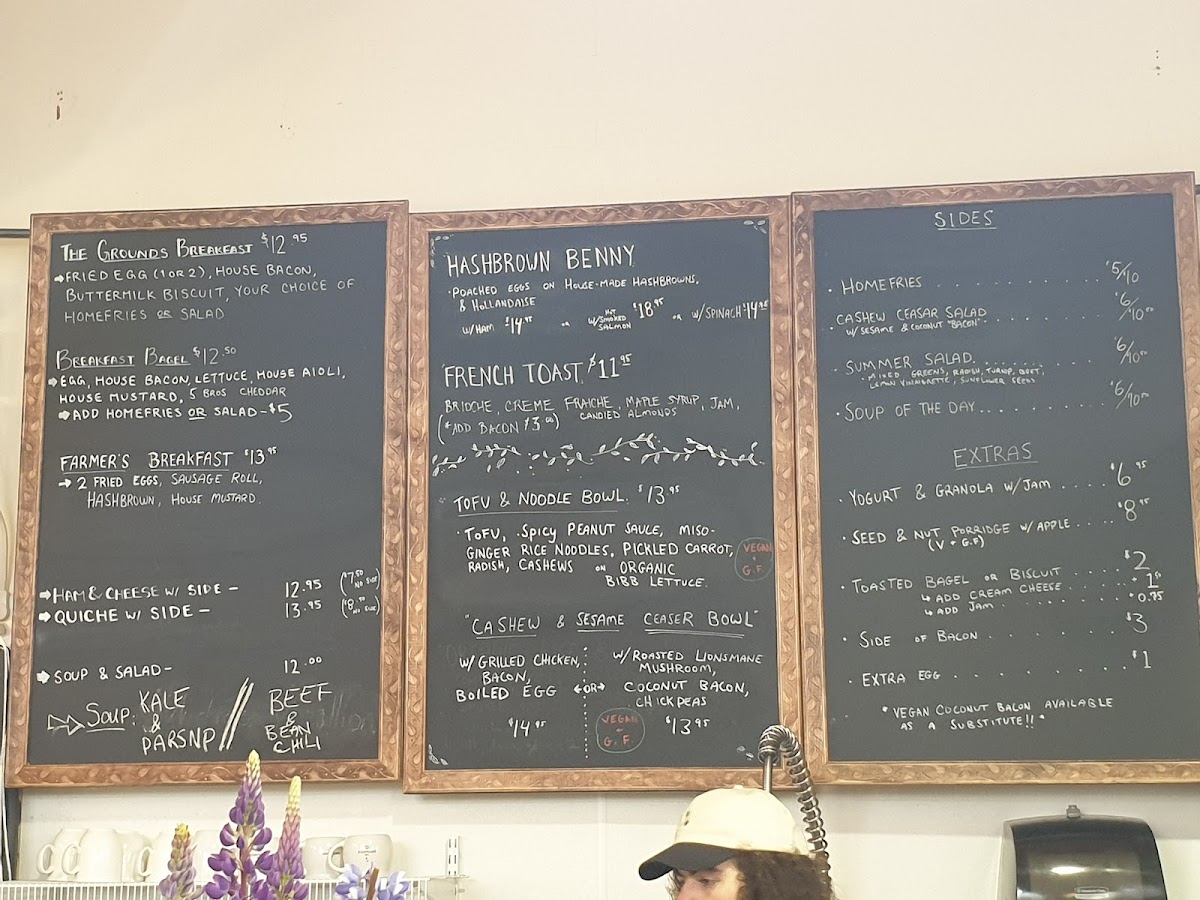 THE GROUNDS BREAKFAST $12 95
FRIED EGG (1 OR 2), HOUSE BACON,
BUTTERMILK BISCUIT, YOUR CHOICE OF
HOMEFRIES OR SALAD
BREAKFAST BAGEL $12.50
EGG, HOUSE BACON, LETTUCE, HOUSE AIOLI,
HOUSE MUSTARD, 5 BROS CHEDDAR
ADD HOMEFRIES OR SALAD - $5
FARMER'S BREAKFAST $13.95
2 FRIED EGGS, SAUSAGE ROLL,
HASHBROWN, HOUSE MUSTARD.
HAM & CHEESE W/ SIDE - 12.95 ($7.50 NO SIDE)
QUICHE W/ SIDE - 13.95 ($8.50 NO SIDE)
SOUP & SALAD - 12.00
SOUP: KALE & PARSNP // BEEF & BEAN CHILI
HASHBROWN BENNY
POACHED EGGS ON HOUSE-MADE HASHBROWNS,
& HOLLANDAISE
W/ HAM $14.95 OR W/ HOT SMOKED SALMON $18.95 OR W/ SPINACH $14.95
FRENCH TOAST $11.95
BRIOCHE, CREME FRAICHE, MAPLE SYRUP, JAM,
CANDIED ALMONDS
(*ADD BACON $3.00)
TOFU & NOODLE BOWL. $13.95
TOFU, SPICY PEANUT SAUCE, MISO-
GINGER RICE NOODLES, PICKLED CARROT,
RADISH, CASHEWS ON ORGANIC
BIBB LETTUCE.
VEGAN
+
G.F.
"CASHEW & SESAME CEASER BOWL"
W/ GRILLED CHICKEN,
BACON,
BOILED EGG
$14.95
OR
W/ ROASTED LIONSMANE
MUSHROOM,
COCONUT BACON,
CHICKPEAS
VEGAN
+
G.F.
$13.95
SIDES
HOMEFRIES $5/10
CASHEW CEASAR SALAD $6/10.00
W/ SESAME & COCONUT "BACON"
SUMMER SALAD $6/10.00
MIXED GREENS, RADISH, TURNIP, BEET,
LEMON VINAIGRETTE, SUNFLOWER SEEDS
SOUP OF THE DAY $6/10.00
EXTRAS
YOGURT & GRANOLA W/ JAM $6.95
SEED & NUT PORRIDGE W/ APPLE $8.95
(V + G.F)
TOASTED BAGEL OR BISCUIT $2
ADD CREAM CHEESE
ADD JAM + 0.75
SIDE OF BACON $3
EXTRA EGG $1
*VEGAN COCONUT BACON AVAILABLE
AS A SUBSTITUTE!!*